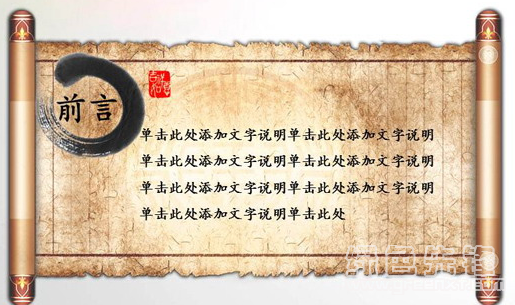 前言
单击此处添加文字说明单击此处添加文字说明
单击此处添加文字说明单击此处添加文字说明
单击此处添加文字说明单击此处添加文字说明
单击此处添加文字说明单击此处